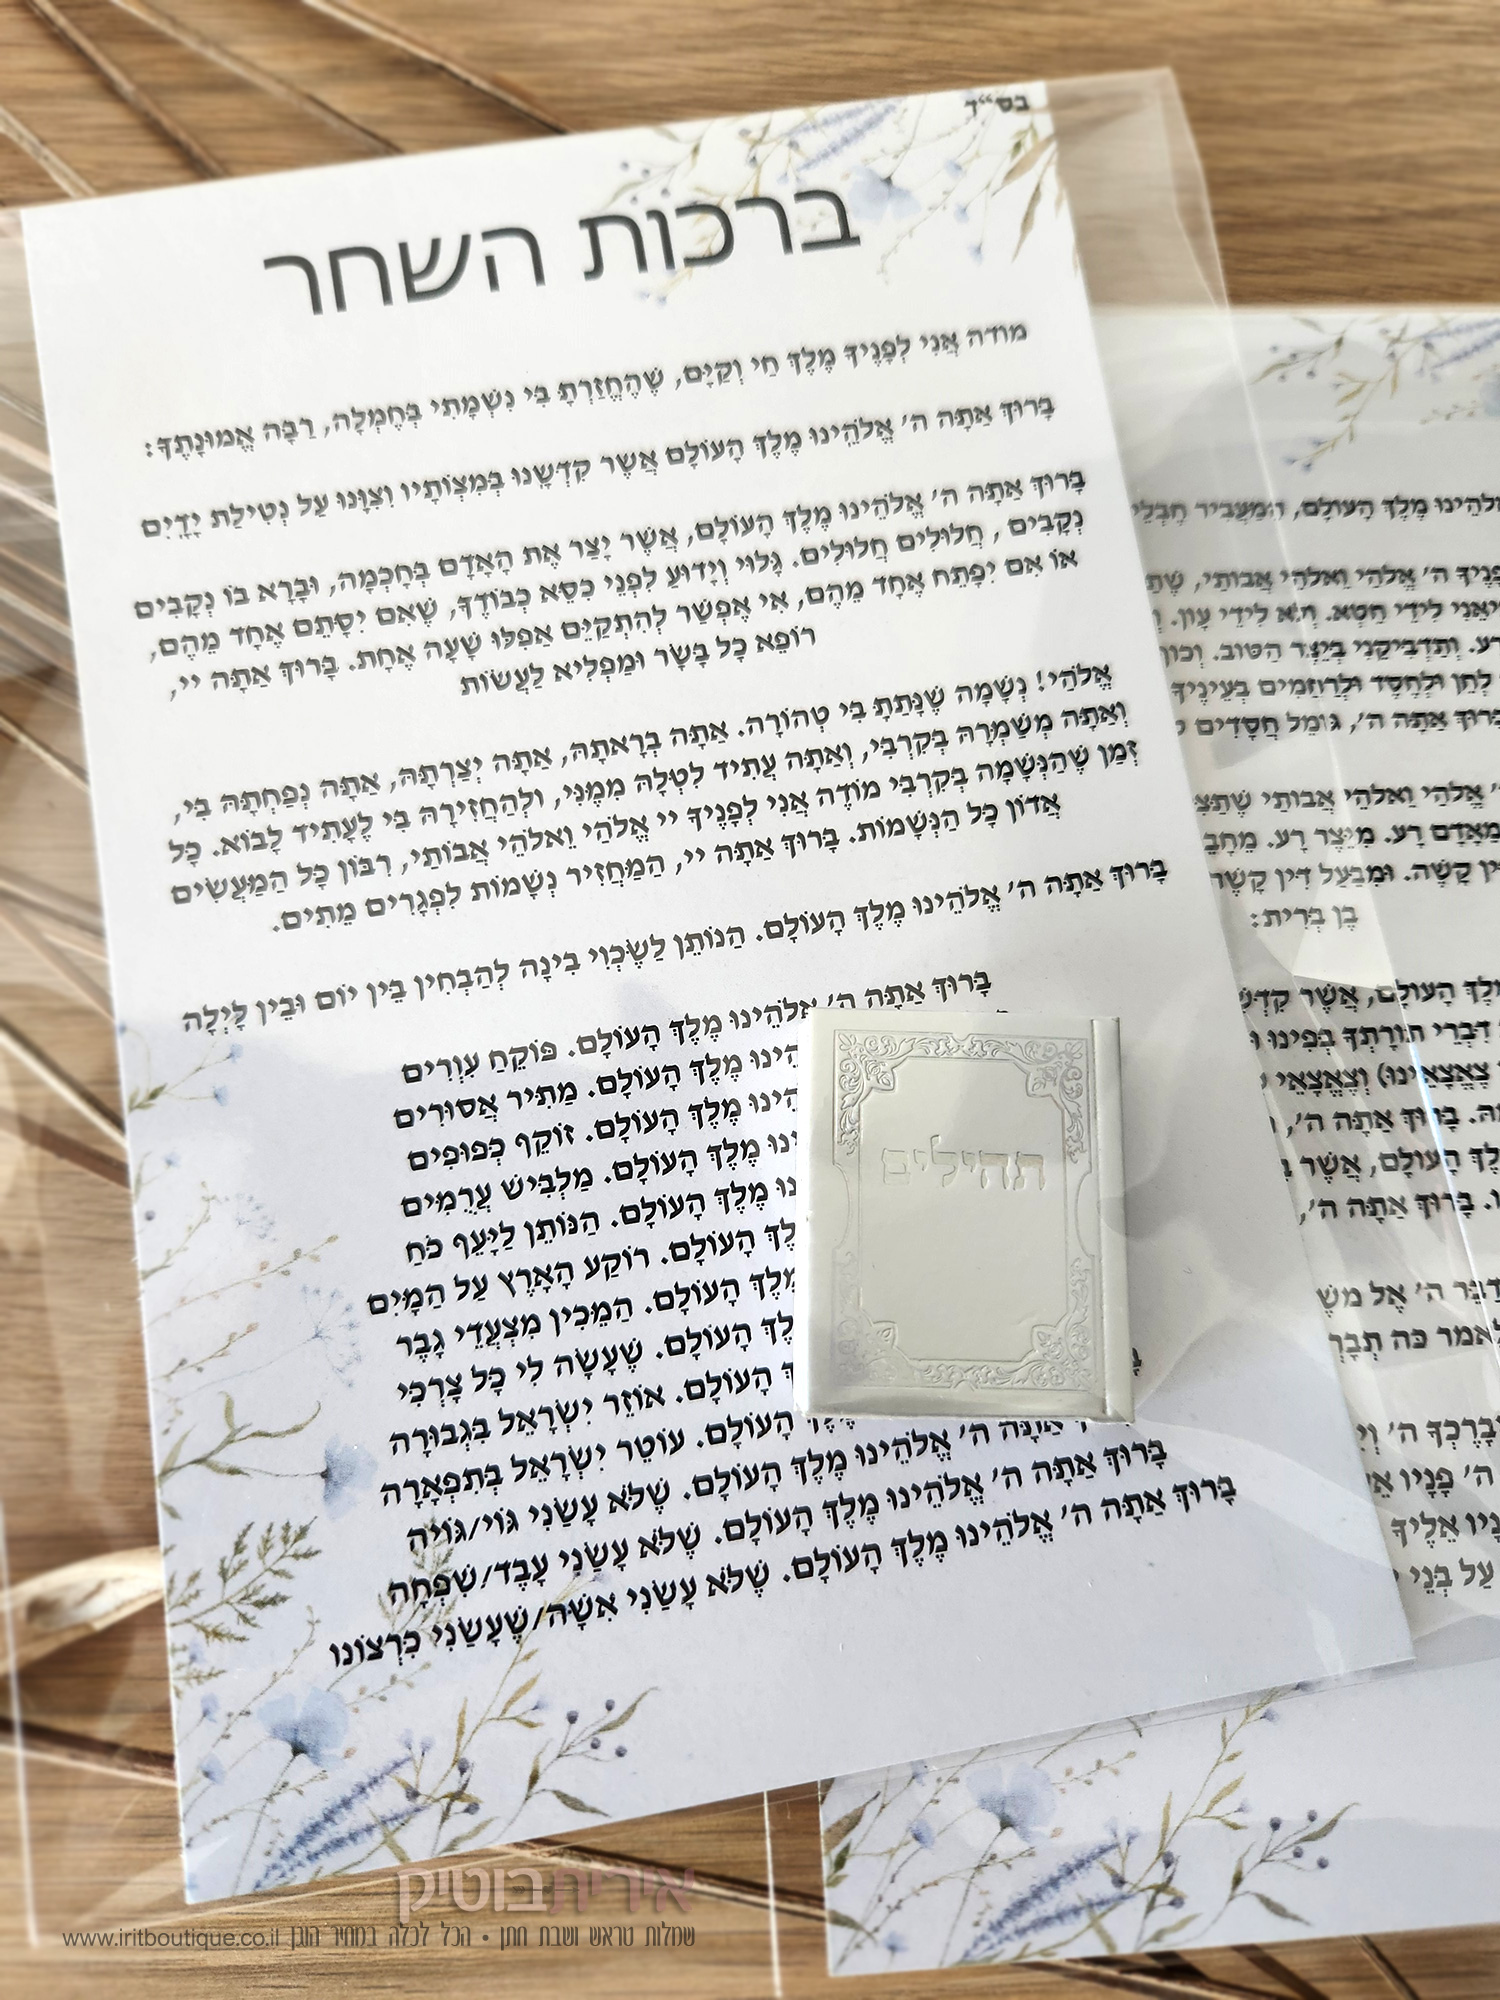 בס״ד
ברכות השחר
מודה אֲנִי לְפָנֶיךָ מֶלֶךְ חַי וְקַיָּם, שֶׁהֶחֱזַרְתָּ בִּי נִשְׁמָתִי בְּחֶמְלָה, רַבָּה אֱמוּנָתֶךָ:
בָּרוּךְ אַתָּה ה׳ אֱלֹהֵינוּ מֶלֶךְ הָעוֹלָם אֲשֶׁר קִדְשָׁנוּ בְּמִצְוֹתָיו וְצִוָּנוּ עַל נְטִילַת יָדָיִם
בָּרוּךְ אַתָּה ה׳ אֱלֹהֵינוּ מֶלֶךְ הָעוֹלָם, אֲשֶׁר יָצַר אֶת הָאָדָם בְּחָכְמָה, וּבָרָא בוֹ נְקָבִים
נְקָבִים , חֲלוּלִים חֲלוּלִים. גָּלוּי וְיָדוּעַ לִפְנֵי כִסֵּא כְבוֹדֶךָ, שֶׁאִם יִסָּתֵם אֶחָד מֵהֶם,
אוֹ אִם יִפָּתֵחַ אֶחָד מֵהֶם, אִי אֶפְשַׁר לְהִתְקַיֵּם אֲפִלּוּ שָׁעָה אֶחָת. בָּרוּךְ אַתָּה יי,
רוֹפֵא כָל בָּשָׂר וּמַפְלִיא לַעֲשׂוֹת
אֱלֹהַי! נְשָׁמָה שֶׁנָּתַתָּ בִּי טְהוֹרָה. אַתָּה בְרָאתָהּ, אַתָּה יְצַרְתָּהּ, אַתָּה נְפַחְתָּהּ בִּי,
וְאַתָּה מְשַׁמְּרָהּ בְּקִרְבִּי, וְאַתָּה עָתִיד לִטְּלָהּ מִמֶּנִּי, וּלְהַחֲזִירָהּ בִּי לֶעָתִיד לָבוֹא. כָּל
זְמַן שֶׁהַנְּשָׁמָה בְּקִרְבִּי מוֹדֶה אֲנִי לְפָנֶיךָ יי אֱלֹהַי וֵאלֹהֵי אֲבוֹתַי, רִבּוֹן כָּל הַמַּעֲשִׂים
אֲדוֹן כָּל הַנְּשָׁמוֹת. בָּרוּךְ אַתָּה יי, הַמַּחֲזִיר נְשָׁמוֹת לִפְגָרִים מֵתִים.
בָּרוּךְ אַתָּה ה׳ אֱלֹהֵינוּ מֶלֶךְ הָעוֹלָם. הַנּוֹתֵן לַשֶּׂכְוִי בִינָה לְהַבְחִין בֵּין יוֹם וּבֵין לָיְלָה
בָּרוּךְ אַתָּה ה׳ אֱלֹהֵינוּ מֶלֶךְ הָעוֹלָם. פּוֹקֵחַ עִוְרִים
מֶלֶךְ הָעוֹלָם. מַתִּיר אֲסוּרִים
מֶלֶךְ הָעוֹלָם. זוֹקֵף כְּפוּפִים
מֶלֶךְ הָעוֹלָם. מַלְבִּישׁ עֲרֻמִּים
מֶלֶךְ הָעוֹלָם. הַנּוֹתֵן לַיָּעֵף כֹּחַ
הָעוֹלָם. רוֹקַע הָאָרֶץ עַל הַמָּיִם
מֶלֶךְ הָעוֹלָם. הַמֵּכִין מִצְעֲדֵי גָבֶר
הָעוֹלָם. שֶׁעָשָׂה לִי כָּל צָרְכִּי
הָעוֹלָם. אוֹזֵר יִשְׂרָאֵל בִּגְבוּרָה
מֶלֶךְ הָעוֹלָם. עוֹטֵר יִשְׂרָאֵל בְּתִפְאָרָה
בָּרוּךְ אַתָּה ה׳ אֱלֹהֵינוּ מֶלֶךְ הָעוֹלָם. שֶׁלֹּא עָשַׂנִי גּוֹי/גּוֹיה
בָּרוּךְ אַתָּה ה׳ אֱלֹהֵינוּ מֶלֶךְ הָעוֹלָם. שֶׁלֹּא עָשַׂנִי עָבֶד/שִׁפְחָה
בָּרוּךְ אַתָּה ה׳ אֱלֹהֵינוּ מֶלֶךְ הָעוֹלָם. שֶׁלֹּא עָשַׂנִי אִשָּׁה/שֶׁעָשַׂנִי כִּרְצוֹנוֹ
תהילים
מֶלֶךְ הָעוֹלָם, הַמַּעֲבִיר חֶבְלֵי
ה׳ אֱלֹהַי וֵאלֹהֵי אֲבוֹתַי,
לִידֵי חֵטְא. וְלֹא לִידֵי עָוֹן.
רָע. וְתַדְבִּיקֵנִי בְּיֵצֶר הַטּוֹב. וְכוֹף
לְחֵן וּלְחֶסֶד וּלְרַחֲמִים בְּעֵינֶיךָ
בָּרוּךְ אַתָּה ה׳, גּוֹמֵל חֲסָדִים
אֱלֹהַי וֵאלֹהֵי אֲבוֹתַי
מֵאָדָם רָע. מִיֵּצֶר רָע.
דִּין קָשֶׁה. וּמִבַּעַל דִּין קָשֶׁה
בֶן בְּרִית:
הָעוֹלָם, אֲשֶׁר
דִּבְרֵי תוֹרָתְךָ בְּפִינוּ
וְצֶאֱצָאֵי
בָּרוּךְ אַתָּה ה׳,
הָעוֹלָם, אֲשֶׁר
בָּרוּךְ אַתָּה ה׳,
ה׳ אֶל
כֹּה
ה׳
ה׳ פָּנָיו
אֵלֶיךָ
עַל בְּנֵי
איריתבוטיק
שמלות טראש ושבת חתן • הכל לכלה במחיר הוגן www.iritboutique.co.il